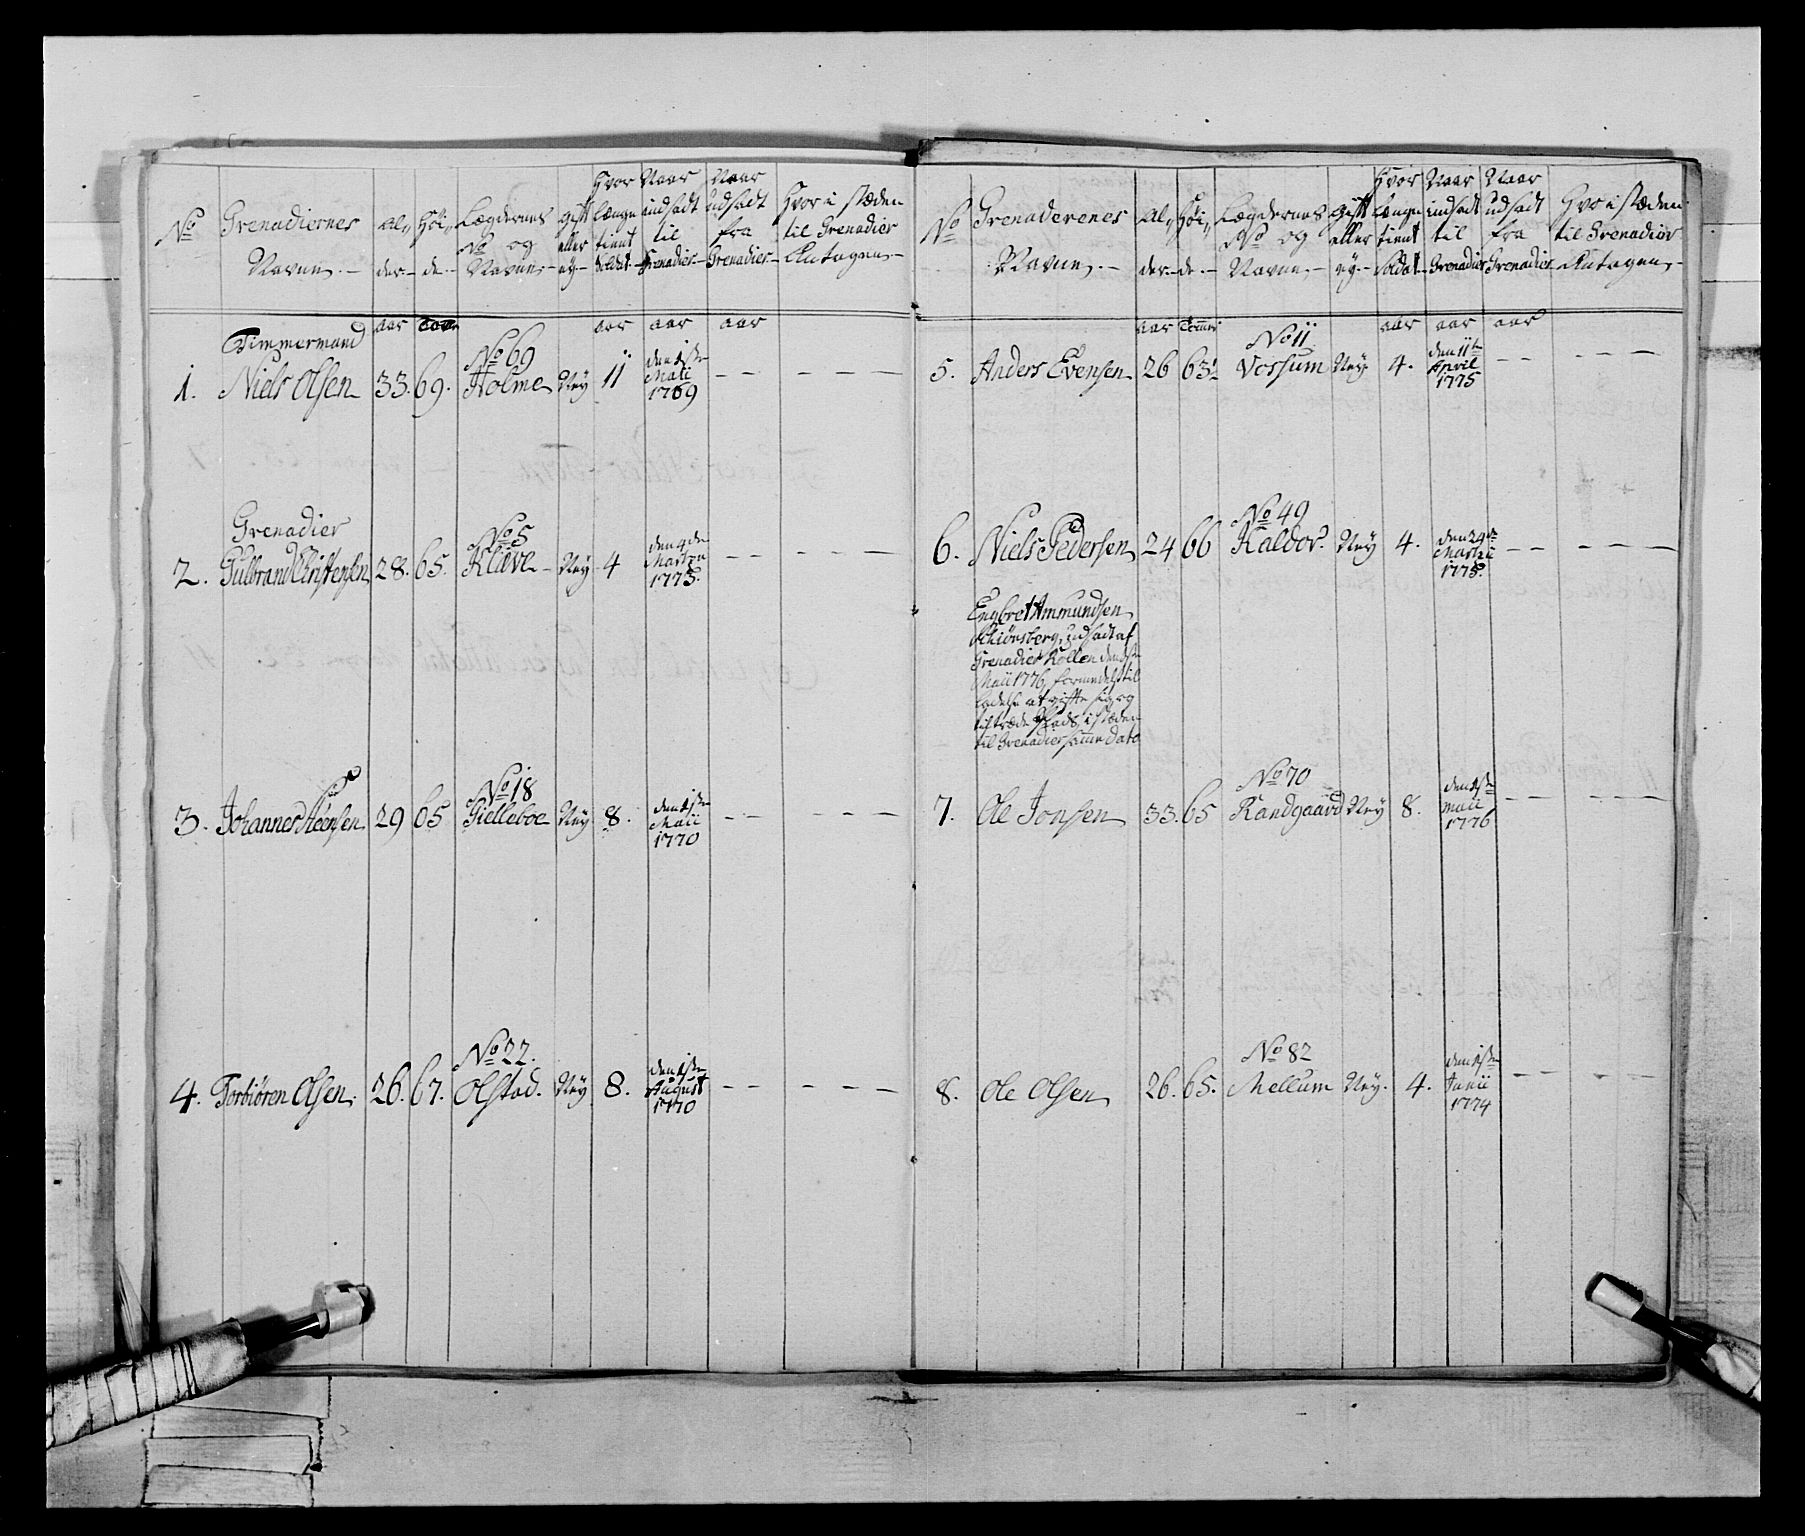 No Grenadiernes Navne.- Al,, der- Høi,, de.- Lægdernes No og Navne,- Gift eller ey- Hvor længe tient Soldat- Naar indsadt til Grenadier- Naar udsadt fra Grenadier- Hvor i stæden til Grenadier Antagen,-
aar Tomer aar aar aar
Timmermand
1. Niels Olsen 33. 69. No 69 Holme Ney 11 den 1ste Maii 1769 - - - - -
Grenadier
2. Gulbrand Christensen 28. 65. No 5 Klave- Ney- 4 den 4de Martii 1775. - - - - -
3. Johannes Steensen 29 65 No 18 Gielleboe Ney 8. den 1ste Maii 1770 - - - - -
4. Torbiøren Olsen. 26. 67. No 22. Olstad. Ney 8. den 1ste August 1770 - - - - -
No Grenaderenes Navne.- Al,, der- Høi,, de.- Lægdernes No og Navne,- Gift eller ey.- Hvor længe tient Soldat- Naar indsadt til Grenadier Naar udsadt fra Grenadier Hvor i stæden til Grenadier Antagen,-
aar Tomer aar aar aar
5. Anders Evensen 26 63½ No 11 Vossum Ney 4. den 11te April 1775 - - - - -
6. Niels Pedersen 24 66 No 49 Kaldor. Ney 4. den 24de Martii 1775. - - - - -
Engbret Ammundsen
Schiønsberg, udsadt af
Grenadier Rollen den 1ste
Maii 1776, formedelst til
ladelse at gifte sig og
tiltræde Plads, i stæden
til Grenadier samme Dato
7. Ole Jonsen 33. 65 No 70 Randgaard Ney 8. den 1ste Maii 1776 - - - - -
8. Ole Olsen 26. 65. No 82 Mellum Ney. 4. den 1ste Junii 1774 - - - - -